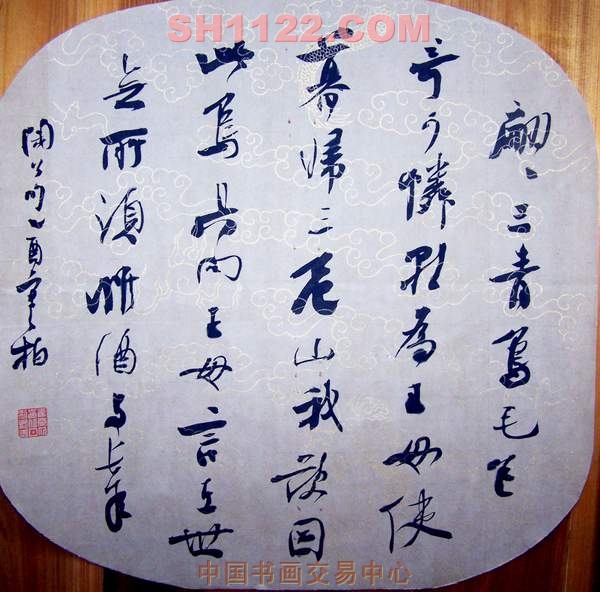 SH1122.COM
翩〻三青鳥毛色
奇可憐朝為王母使
暮歸三危山我欲因
此鳥具向王母言在世
無所須惟酒與長年
陶公句乙酉柏
中国书画交易中心